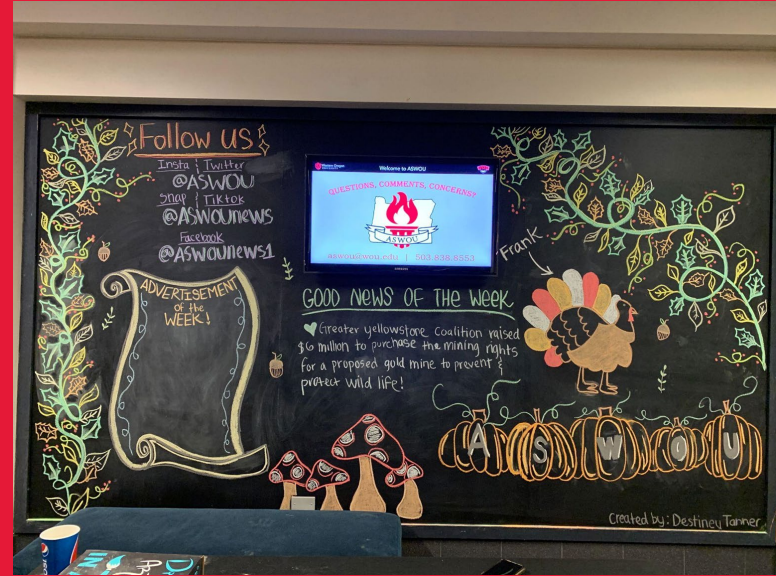 Follow us
Insta | Twitter
@ASWOU
Snap | Tiktok
@ASWOUnews
Facebook
@ASWOUnews1
ADVERTISEMENT
of the
WEEK!
Welcome to ASWOU
QUESTIONS, COMMENTS, CONCERNS?
ASWOU
aswou@wou.edu | 503.838.8553
SAMSUNG
GOOD NEWS OF THE WEEK
Greater yellowstone Coalition raised
$6 million to purchase the mining rights
for a proposed gold mine to prevent &
protect wild life!
Frank
A S W O U
Created by: Destiney Tanner